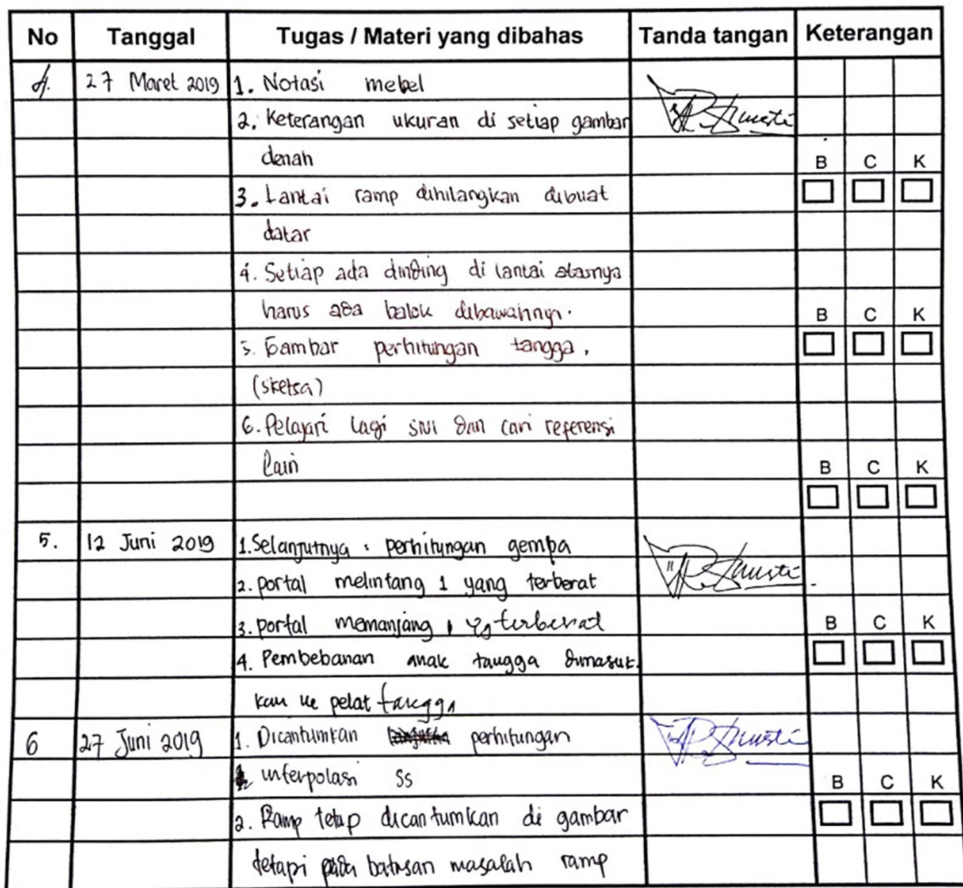 No Tanggal Tugas / Materi yang dibahas Tanda tangan Keterangan
4. 27 Maret 2019 1. Notasi mebel
2. Keterangan ukuran di setiap gambar
denah B C K
3. Lantai ramp dihilangkan dibuat
datar
4. Setiap ada dinding di lantai atasnya
harus ada balok dibawahnya. B C K
5. Gambar perhitungan tangga,
(sketsa)
6. Pelajari lagi SNI dan cari referensi
lain B C K
5. 12 Juni 2019 1. Selanjutnya : perhitungan gempa
2. portal melintang 1 yang terberat
3. portal memanjang 1 yg terberat B C K
4. Pembebanan anak tangga dimasuk
kan ke pelat tangga
6 27 Juni 2019 1. Dicantumkan perhitungan
interpolasi Ss B C K
2. Ramp tetap dicantumkan di gambar
tetapi pada batasan masalah ramp